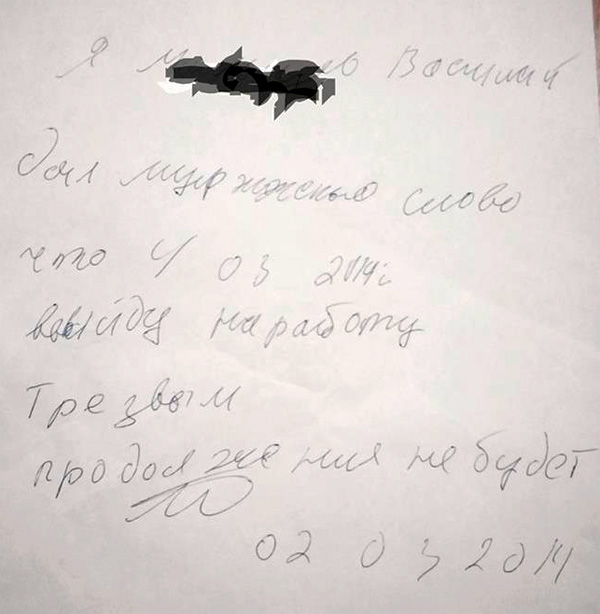 Я Василий
дал мужженью слово
что 4 03 2014г
выйду на работу
Трезвым
продолжения не будет
02 03 2014